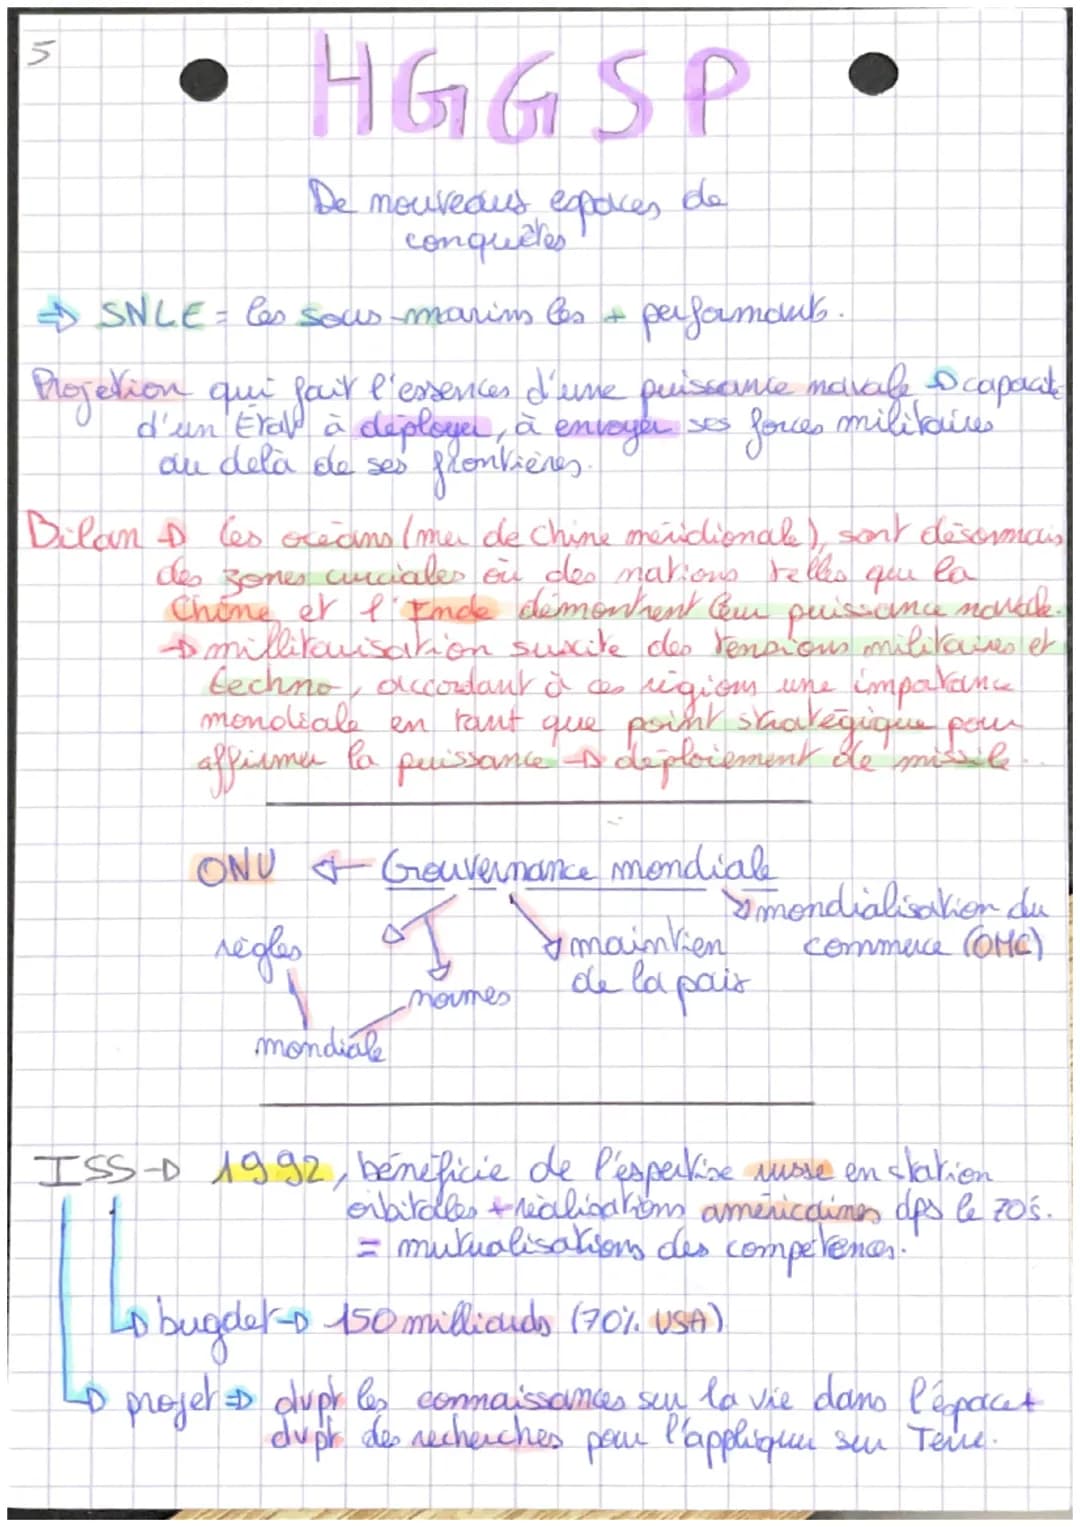 5
HGGSP
De nouveaux espaces de
conquêtes
⇒ SNLE = les sous-marins les + performants.
Projetion qui fait l'essences d'une puissance navale → capacité
d'un État à déployer, à envoyer ses forces militaires
au delà de ses frontières.
Bilan → les océans (mer de Chine méridionale), sont désormais
des zones cruciales où des nations telles que la
Chine et l'Inde démontrent leur puissance navale.
→ millitarisation suscite des tensions militaires et
techno, accordant à ces régions une importance
mondiale en tant que point stratégique pour
affirmer la puissance → déploiement de missile..
ONU ← Gouvernance mondiale
→ mondialisation du
règles → maintien commerce (OMC)
normes de la paix
mondiale
ISS → 1992, bénéficie de l'expertise russe en station
orbitales + réalisations américaines dps le 70's.
= mutualisations des compétences.
→ bugdet → 150 milliards (70% USA)
→ projet ⇒ dvpt les connaissances sur la vie dans l'espace +
dvpt des recherches pour l'appliquer sur Terre.